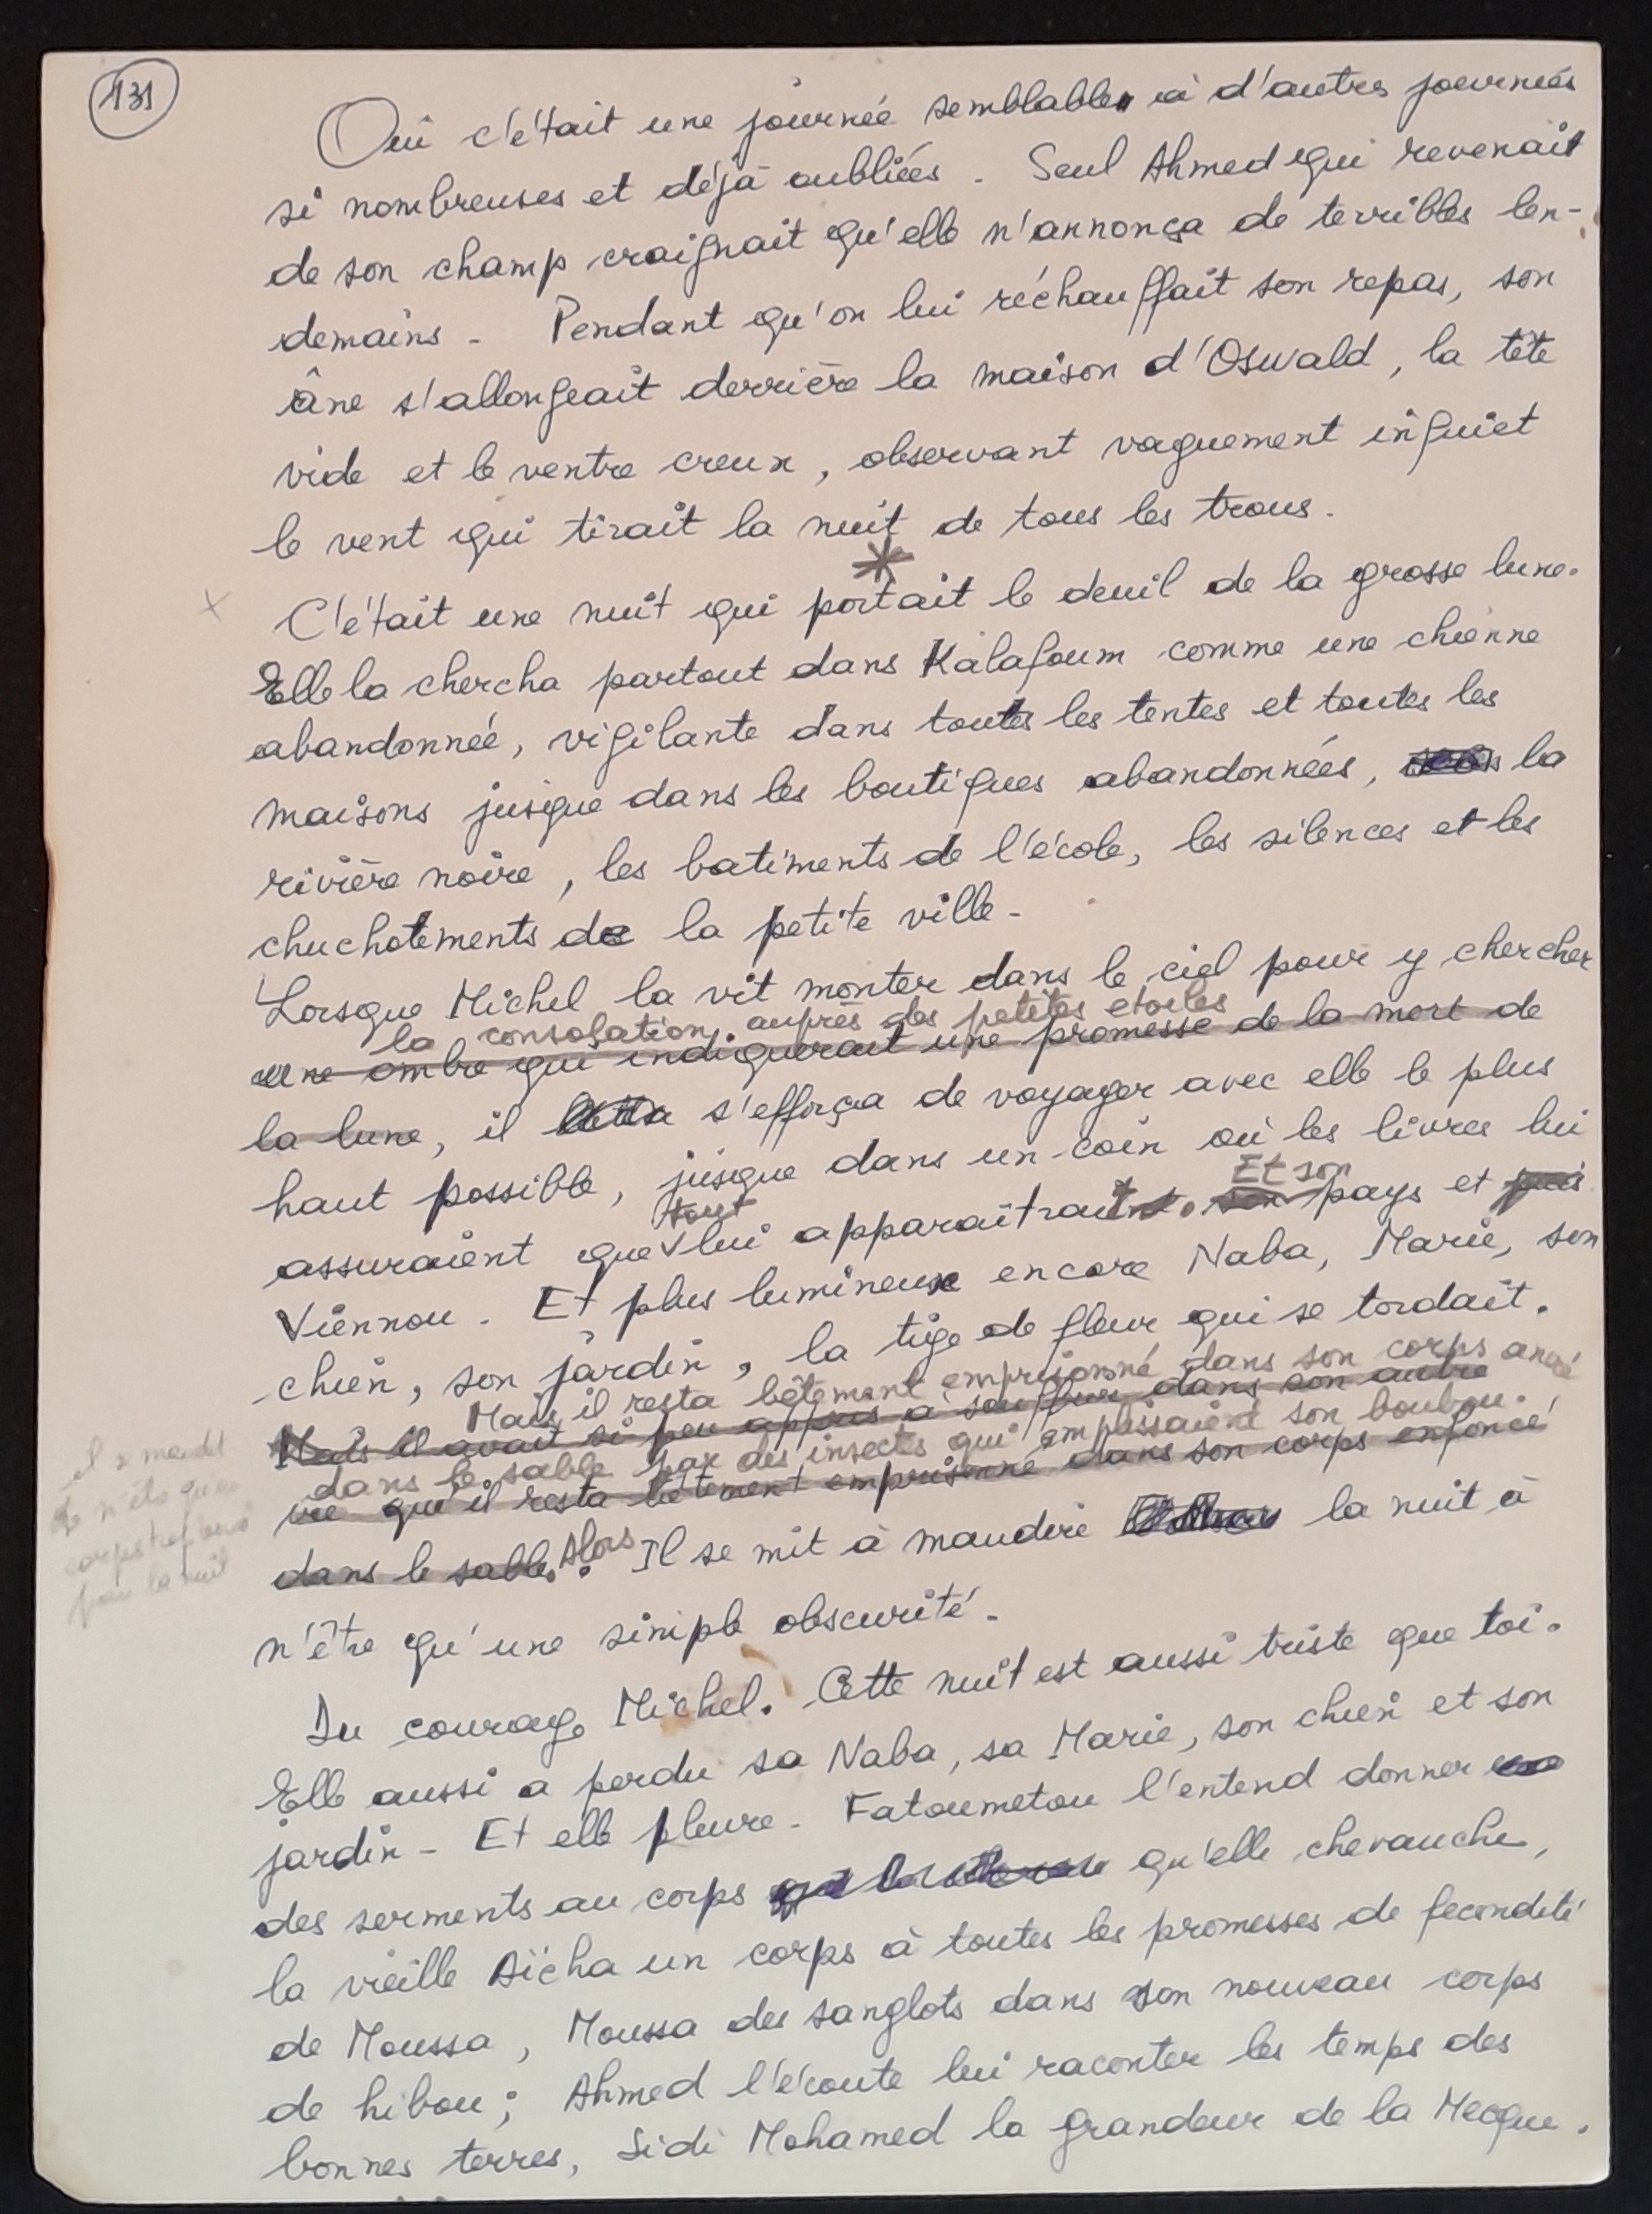 131
Oui c'était une journée semblable à d'autres journées
si nombreuses et déjà oubliées. Seul Ahmed qui revenait
de son champ craignait qu'elle n'annonça de terribles len-
demains. Pendant qu'on lui réchauffait son repas, son
âne s'allongeait derrière la maison d'Oswald, la tête
vide et le ventre creux, observant vaguement inquiet
le vent qui tirait la nuit de tous les trous.
*
x C'était une nuit qui portait le deuil de la grosse lune.
Elle la chercha partout dans Kalafoum comme une chienne
abandonnée, vigilante dans toutes les tentes et toutes les
maisons jusque dans les boutiques abandonnées, la
rivière noire, les batiments de l'école, les silences et les
chuchotements de la petite ville.
Lorsque Michel la vit monter dans le ciel pour y chercher
la consolation auprès des petites etoiles
une ombre qui indiquerait une promesse de la mort de
la lune, il s'efforça de voyager avec elle le plus
haut possible, jusque dans un coin où les livres lui
assuraient que tout lui apparaîtrait. Et son pays et
Viennou. Et plus lumineuse encore Naba, Marie, son
chien, son jardin, la tige de fleur qui se tordait.
Mais il resta bêtement emprisonné dans son corps
Mais il avait si peu appris à souffrir dans son autre
dans le sable par des insectes qui emplissaient son boubou.
vie qu'il resta bêtement emprisonné dans son corps enfoncé
dans le sable. Alors Il se mit à maudire la nuit à
n'être qu'une simple obscurité.
Du courage Michel. Cette nuit est aussi triste que toi.
Elle aussi a perdu sa Naba, sa Marie, son chien et son
jardin - Et elle pleure. Fatoumetou l'entend donner
des serments au corps qu'elle chevauche,
la vieille Aïcha un corps à toutes les promesses de fecondité
de Moussa, Moussa des sanglots dans son nouveau corps
de hibou; Ahmed l'écoute lui raconter les temps des
bonnes terres, Sidi Mohamed la grandeur de la Mecque.